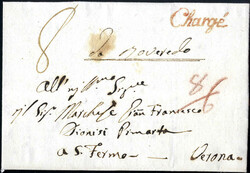 Chargé
8
de Roveredo
All'
Sigre
il Sigr Marchese Gian Francesco
Dionisi
a S. Fermo
Verona